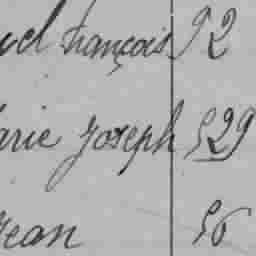 uel françois 92
arie Joseph 529
Jean 56